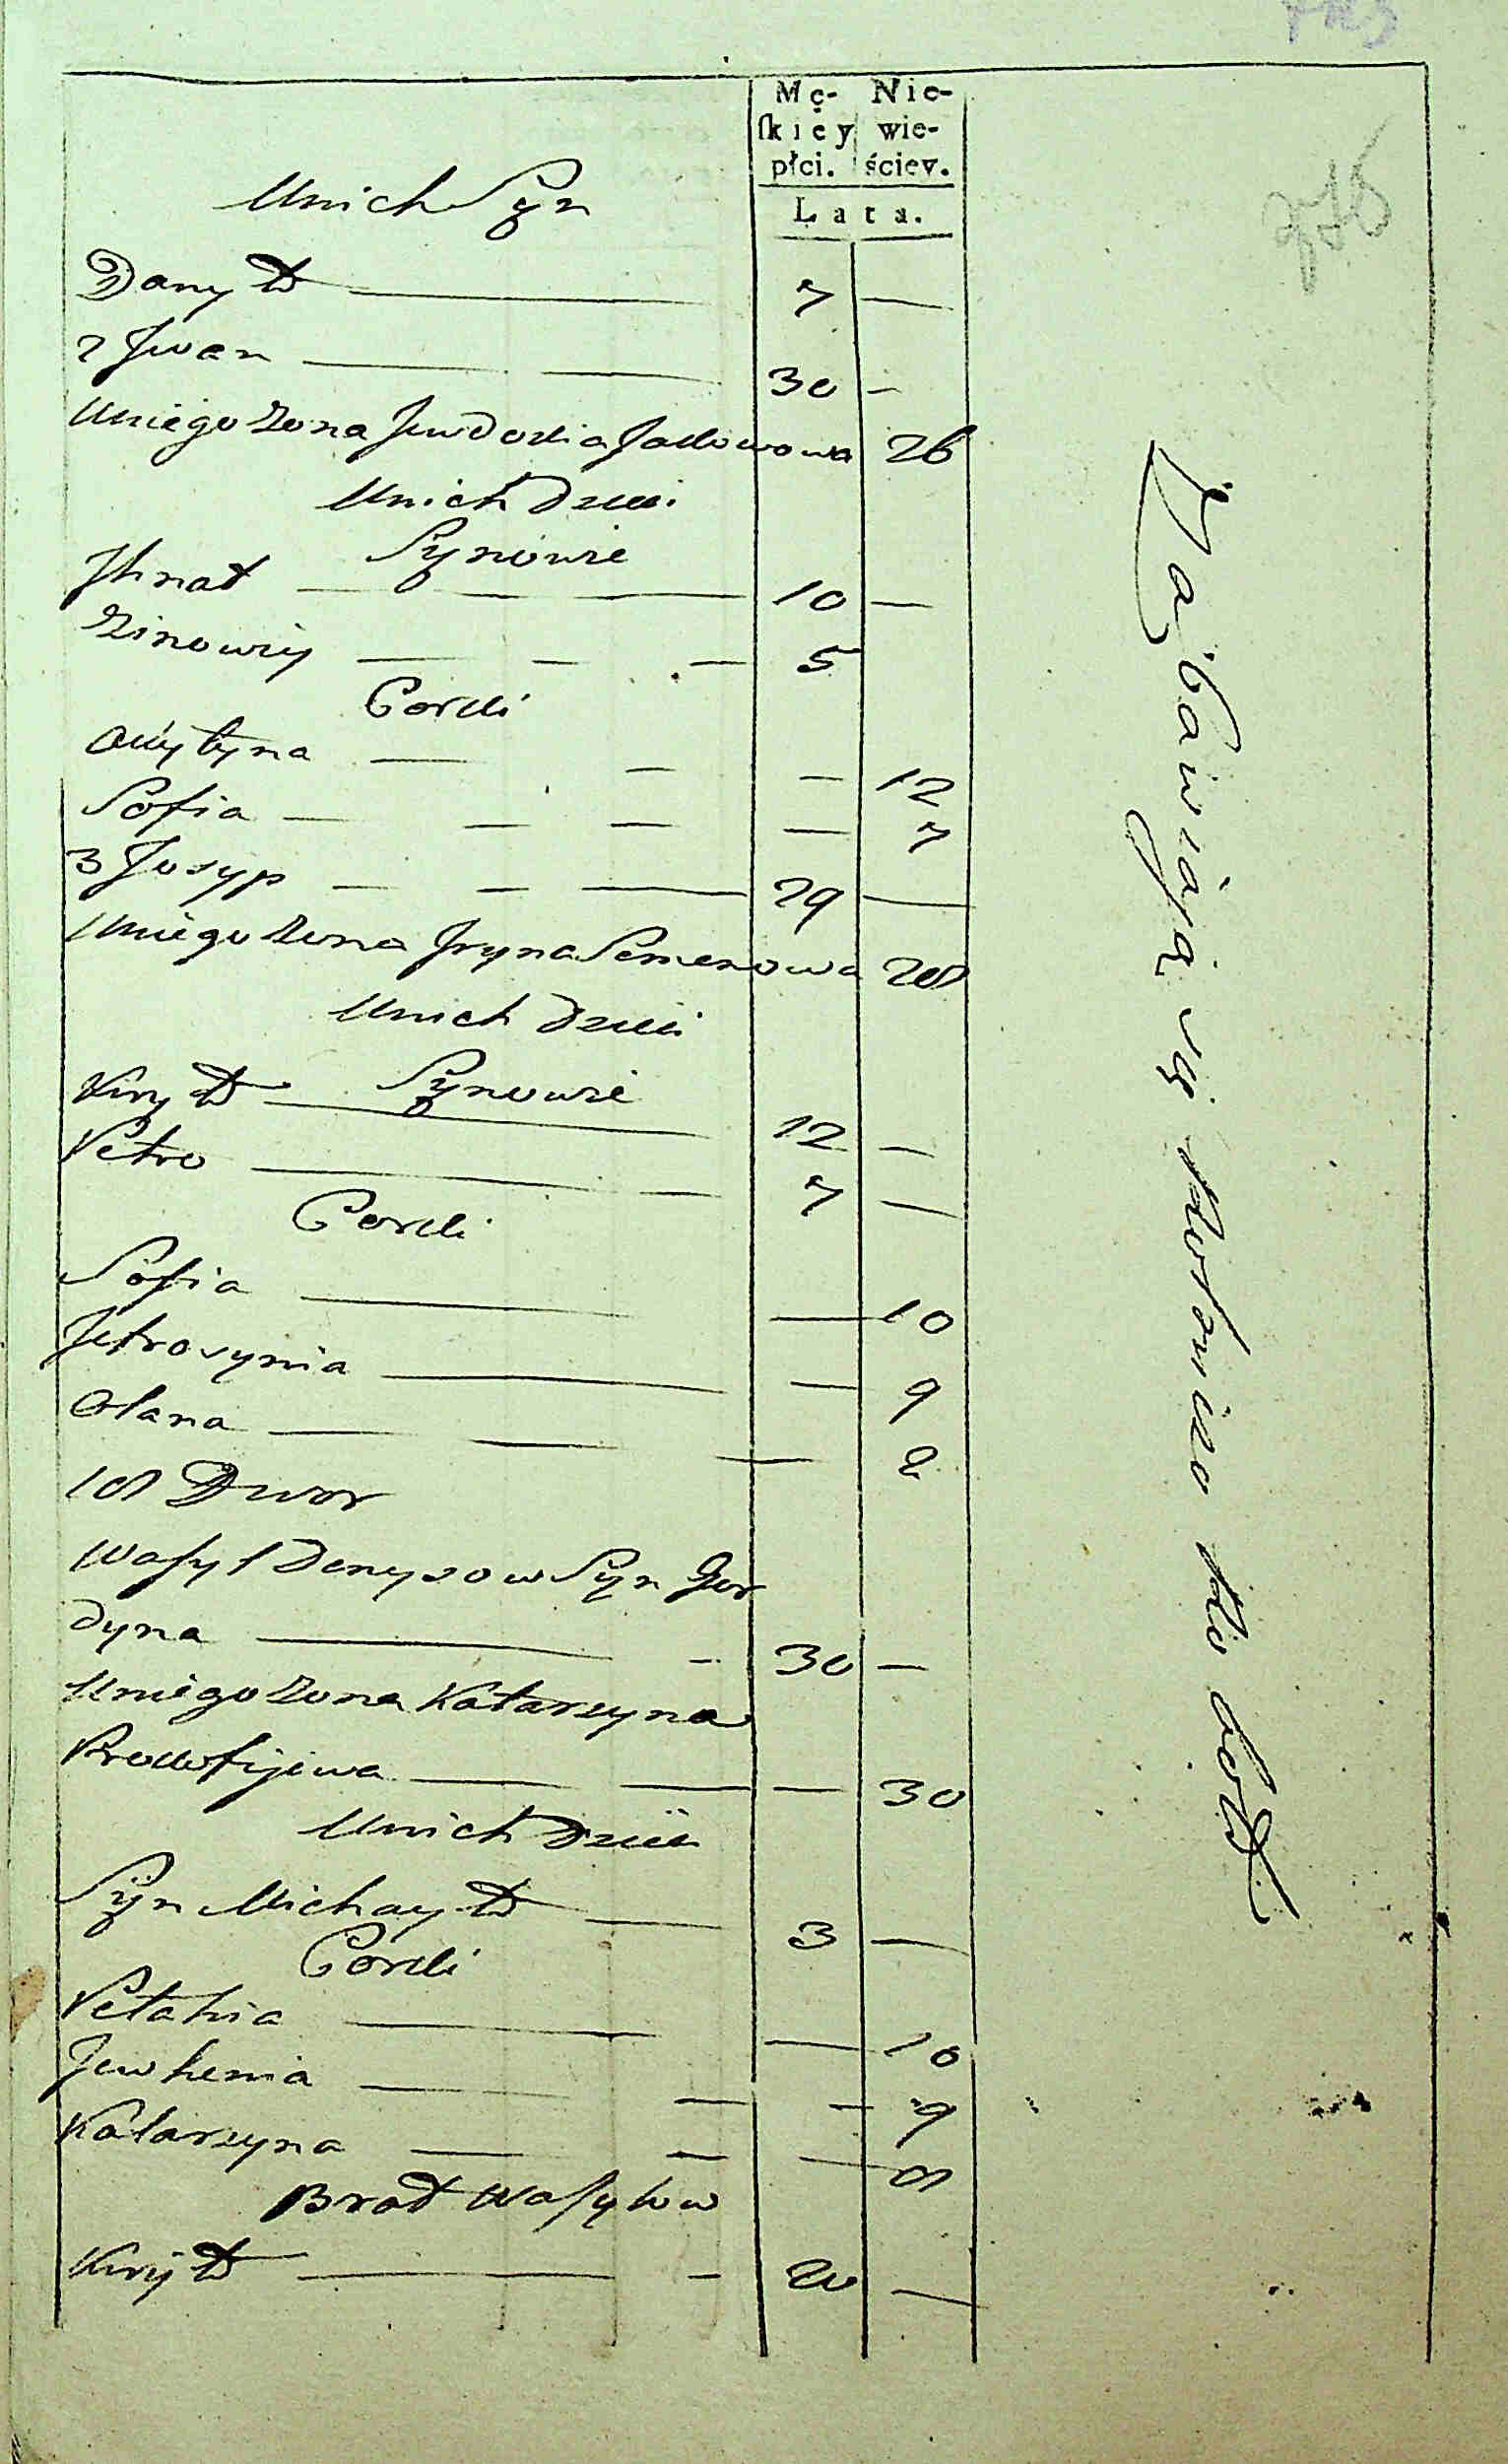 Mę- Nie-
ſkiey wie-
płci. ściey.
Lata.
Unich Syn
Danyło 7 —
2 Jwan 30 —
Uniego Żona Jewdokia Jakowowa 26
Unich Dzieci
Synowie
Jhnat 10 —
Zinowiy 5
Corki
Mytyna — 12
Sofia — 7
3 Josyp 29 —
Uniego Żona Jryna Semenowa 28
Unich Dzieci
Synowie
Kiryło 12 —
Petro 7 —
Corki
Sofia — 10
Jefrosynia — 9
Olana — 2
18 Dwor
Wasyl Denysow Syn Gor
dyna 30 —
Uniego Żona Katarzyna
Prokofijewa — 30
Unich Dzieci
Syn Michayło 3 —
Corki
Pelahia — 10
Jewhenia — 9
Katarzyna — 8
Brat Wasylow
Kiryło 20 —
Zabawiaią się